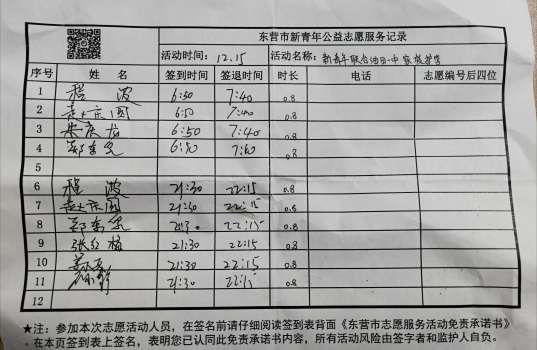 东营市新青年公益志愿服务记录
活动时间: 12.15 活动名称:
序号 姓 名 签到时间 签退时间 时长 电话 志愿编号后四位
1 程 波 6:50 7:40 0.8
2 赵庆国 6:50 7:40 0.8
3 庆 6:50 7:40 0.8
4 郑 6:50 7:40 0.8
5
6 程 波 21:30 22:15 0.8
7 赵庆国 21:30 22:15 0.8
8 郑 21:30 22:15 0.8
9 张红梅 21:30 22:15 0.8
10 21:30 22:15 0.8
11 21:30 22:15 0.8
12
★注: 参加本次志愿活动人员, 在签名前请仔细阅读签到表背面《东营市志愿服务活动免责承诺书》
. 在本页签到表上签名, 表明您已认同此免责承诺书内容, 所有活动风险由签字者和监护人自负。